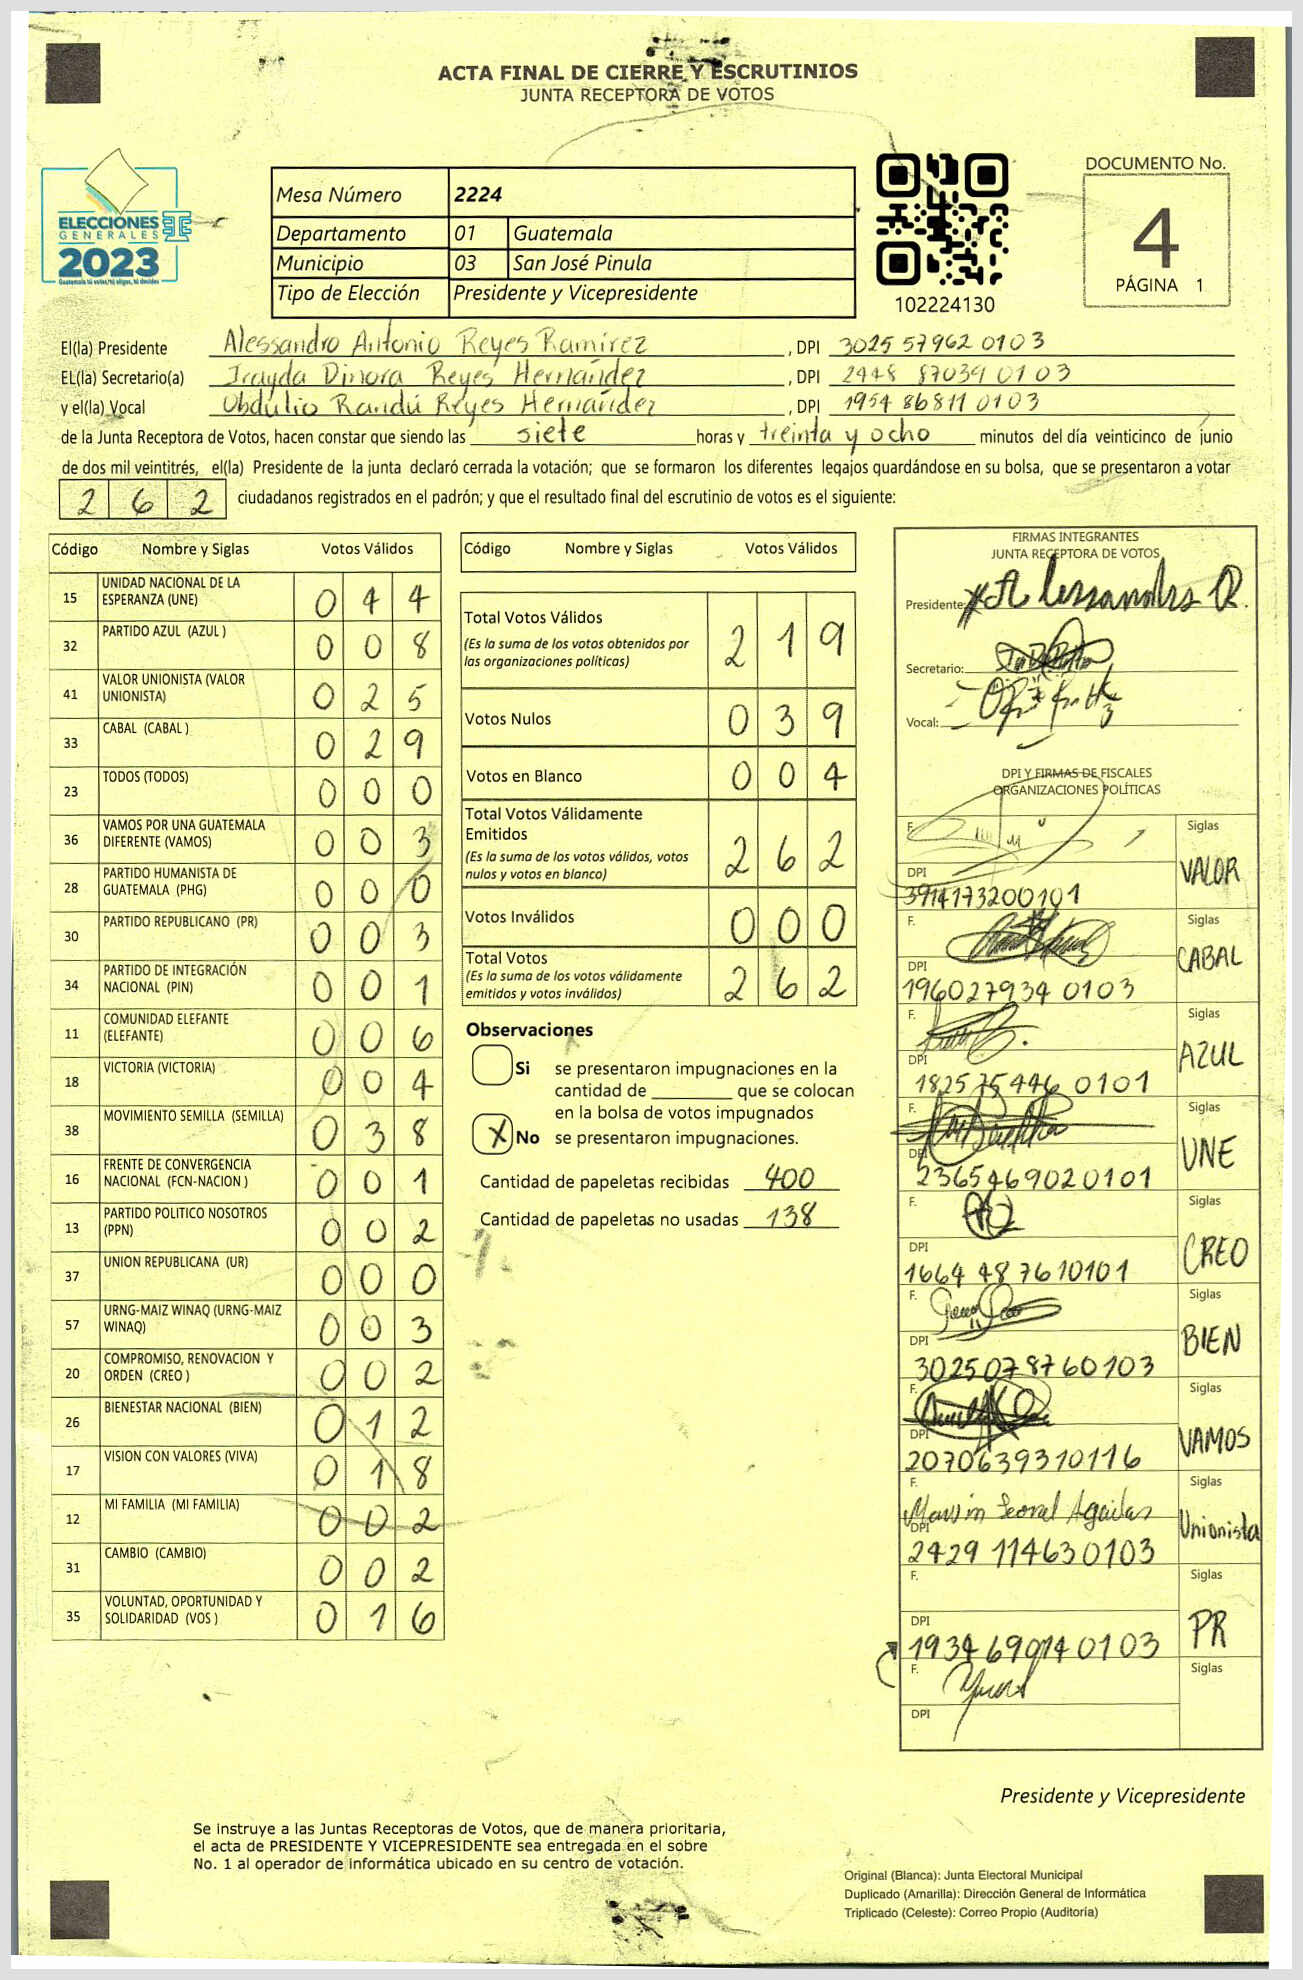 ACTA FINAL DE CIERRE Y ESCRUTINIOS
JUNTA RECEPTORA DE VOTOS
ELECCIONES
GENERALES
2023
Guatemala tú votas, tú eliges, tú decides
Mesa Número 2224
Departamento 01 Guatemala
Municipio 03 San José Pinula
Tipo de Elección Presidente y Vicepresidente
102224130
DOCUMENTO No.
4
PÁGINA 1
El(la) Presidente Alessandro Antonio Reyes Ramírez , DPI 3025 57962 0103
EL(la) Secretario(a) Irayda Dinora Reyes Hernández , DPI 2448 87039 0103
y el(la) Vocal Obdulio Randú Reyes Hernández , DPI 1954 86811 0103
de la Junta Receptora de Votos, hacen constar que siendo las siete horas y treinta y ocho minutos del día veinticinco de junio
de dos mil veintitrés, el(la) Presidente de la junta declaró cerrada la votación; que se formaron los diferentes legajos guardándose en su bolsa, que se presentaron a votar
262 ciudadanos registrados en el padrón; y que el resultado final del escrutinio de votos es el siguiente:
Código Nombre y Siglas Votos Válidos
15 UNIDAD NACIONAL DE LA ESPERANZA (UNE) 044
32 PARTIDO AZUL (AZUL ) 008
41 VALOR UNIONISTA (VALOR UNIONISTA) 025
33 CABAL (CABAL ) 029
23 TODOS (TODOS) 000
36 VAMOS POR UNA GUATEMALA DIFERENTE (VAMOS) 003
28 PARTIDO HUMANISTA DE GUATEMALA (PHG) 000
30 PARTIDO REPUBLICANO (PR) 003
34 PARTIDO DE INTEGRACIÓN NACIONAL (PIN) 001
11 COMUNIDAD ELEFANTE (ELEFANTE) 006
18 VICTORIA (VICTORIA) 004
38 MOVIMIENTO SEMILLA (SEMILLA) 038
16 FRENTE DE CONVERGENCIA NACIONAL (FCN-NACION ) 001
13 PARTIDO POLITICO NOSOTROS (PPN) 002
37 UNION REPUBLICANA (UR) 000
57 URNG-MAIZ WINAQ (URNG-MAIZ WINAQ) 003
20 COMPROMISO, RENOVACION Y ORDEN (CREO ) 002
26 BIENESTAR NACIONAL (BIEN) 012
17 VISION CON VALORES (VIVA) 018
12 MI FAMILIA (MI FAMILIA) 002
31 CAMBIO (CAMBIO) 002
35 VOLUNTAD, OPORTUNIDAD Y SOLIDARIDAD (VOS ) 016
Código Nombre y Siglas Votos Válidos
Total Votos Válidos 219
(Es la suma de los votos obtenidos por
las organizaciones políticas)
Votos Nulos 039
Votos en Blanco 004
Total Votos Válidamente
Emitidos 262
(Es la suma de los votos válidos, votos
nulos y votos en blanco)
Votos Inválidos 000
Total Votos 262
(Es la suma de los votos válidamente
emitidos y votos inválidos)
Observaciones
Si se presentaron impugnaciones en la
cantidad de ________ que se colocan
en la bolsa de votos impugnados
X No se presentaron impugnaciones.
Cantidad de papeletas recibidas 400
Cantidad de papeletas no usadas 138
FIRMAS INTEGRANTES
JUNTA RECEPTORA DE VOTOS
Presidente: Alessandro R.
Secretario:
Vocal:
DPI Y FIRMAS DE FISCALES
ORGANIZACIONES POLÍTICAS
F. Siglas
DPI VALOR
3914173200101
F. Siglas
DPI CABAL
196027934 0103
F. Siglas
DPI AZUL
182575446 0101
F. Siglas
DPI UNE
2365469020101
F. Siglas
DPI CREO
1664 487610101
F. Siglas
DPI BIEN
3025078760103
F. Siglas
DPI VAMOS
2070639310116
F. Siglas
DPI Unionista
2429 114630103
F. Siglas
DPI PR
1934 690140103
F. Siglas
DPI
Presidente y Vicepresidente
Se instruye a las Juntas Receptoras de Votos, que de manera prioritaria,
el acta de PRESIDENTE Y VICEPRESIDENTE sea entregada en el sobre
No. 1 al operador de informática ubicado en su centro de votación.
Original (Blanca): Junta Electoral Municipal
Duplicado (Amarilla): Dirección General de Informática
Triplicado (Celeste): Correo Propio (Auditoría)